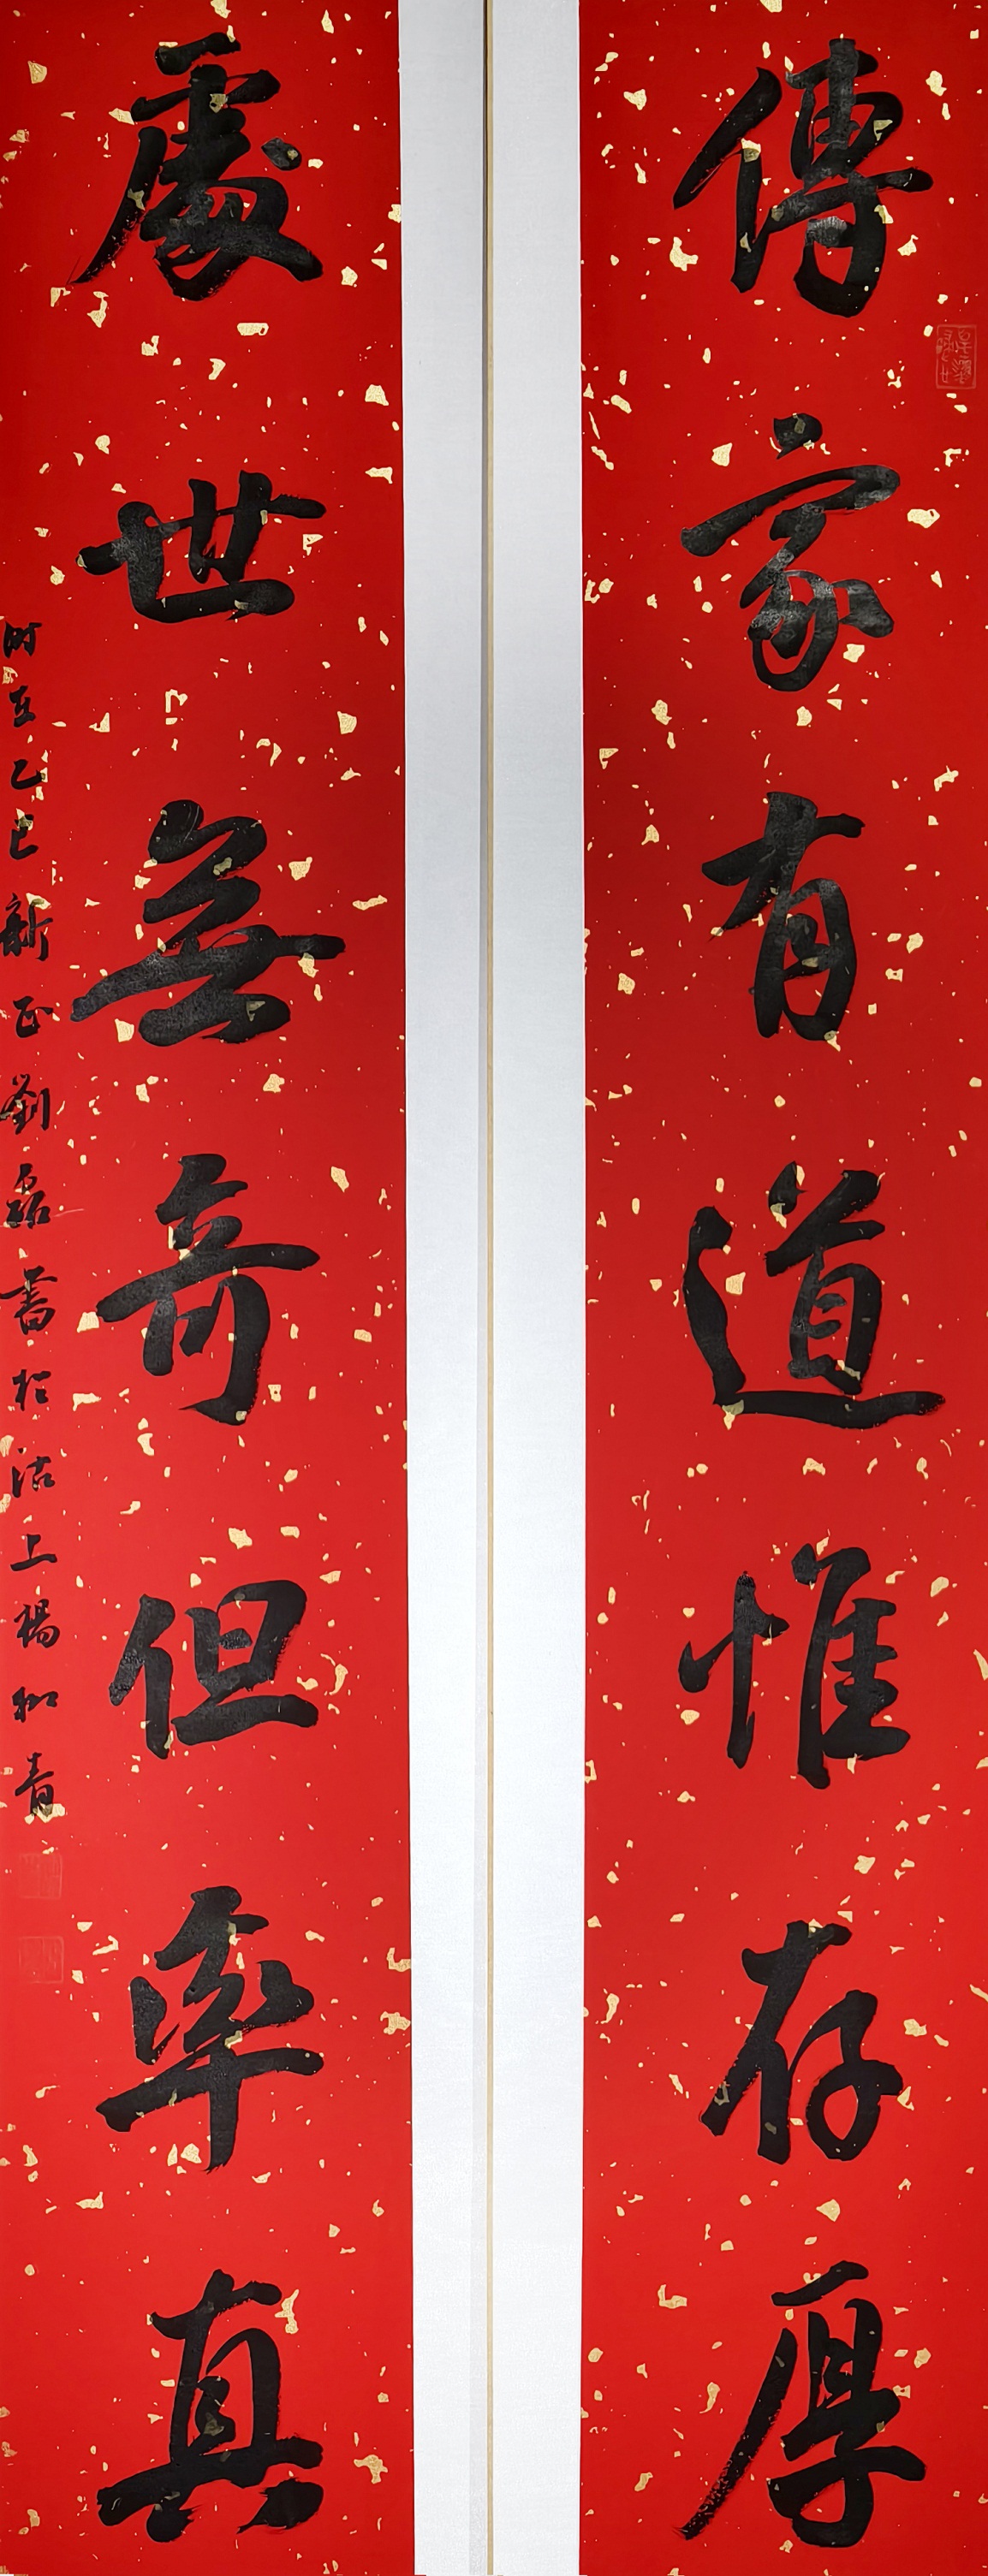 傳家有道惟存厚
處世無奇但率真
時在乙巳新正劉磊書於沽上楊柳青